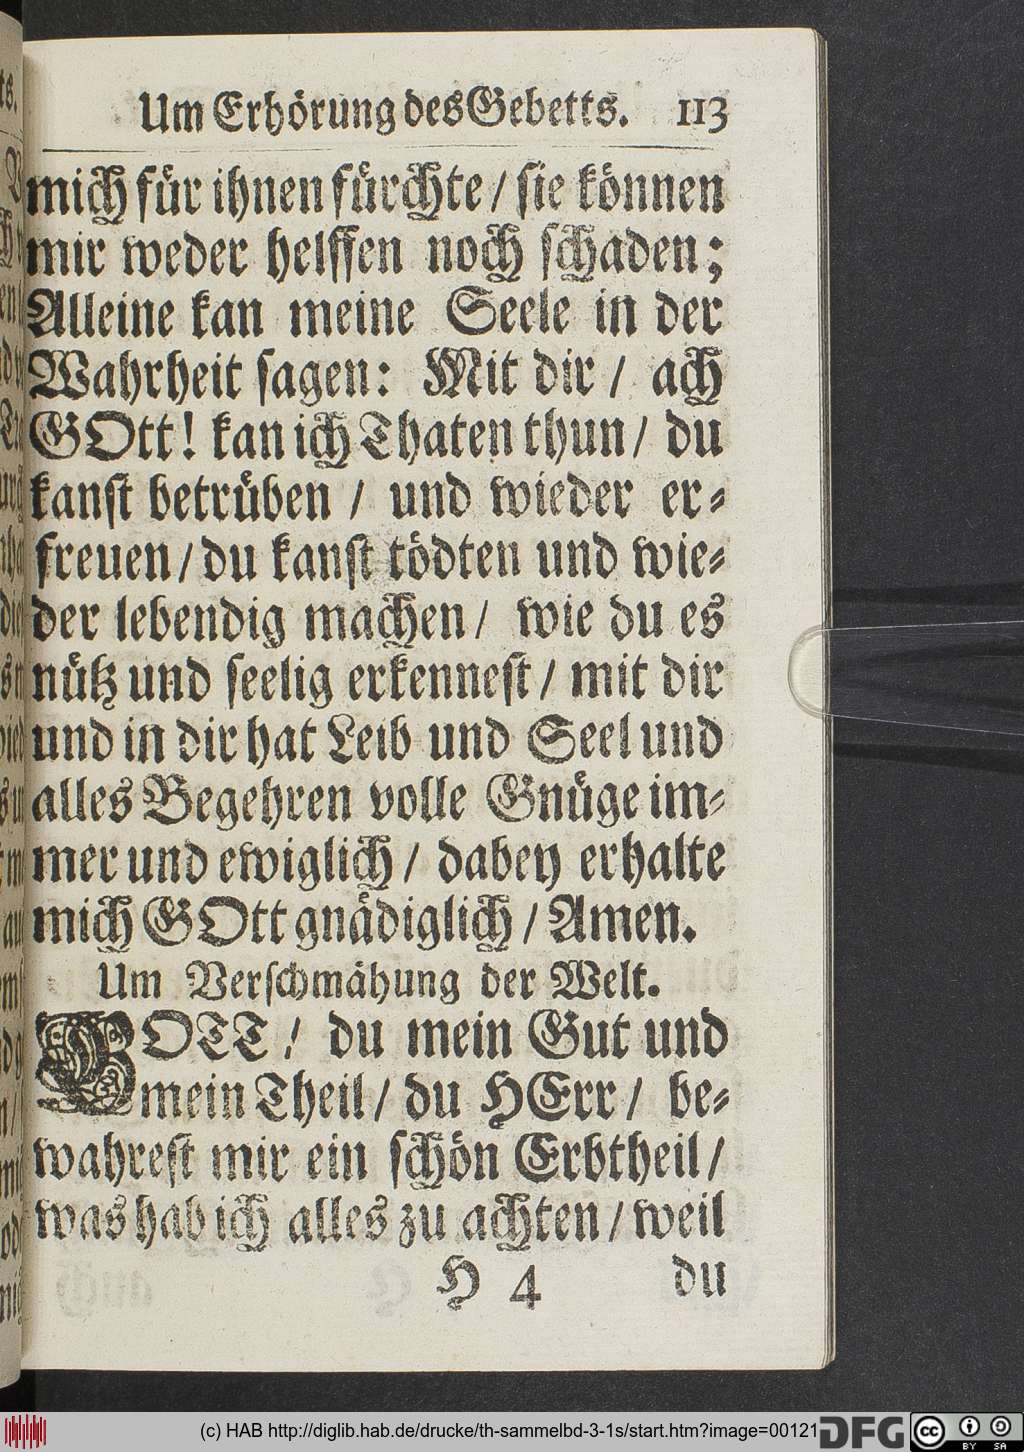 Um Erhörung des Gebetts. 113
mich für ihnen fürchte / sie können
mir weder helffen noch schaden;
Alleine kan meine Seele in der
Wahrheit sagen: Mit dir / ach
GOtt! kan ich Thaten thun / du
kanst betrüben / und wieder er-
freuen / du kanst tödten und wie-
der lebendig machen / wie du es
nütz und seelig erkennest / mit dir
und in dir hat Leib und Seel und
alles Begehren volle Gnüge im-
mer und ewiglich / dabey erhalte
mich GOtt gnädiglich / Amen.
Um Verschmähung der Welt.
GOTT / du mein Gut und
mein Theil / du HErr / be-
wahrest mir ein schön Erbtheil /
was hab ich alles zu achten / weil
H 4 du
(c) HAB http://diglib.hab.de/drucke/th-sammelbd-3-1s/start.htm?image=00121
DFG
cc BY SA